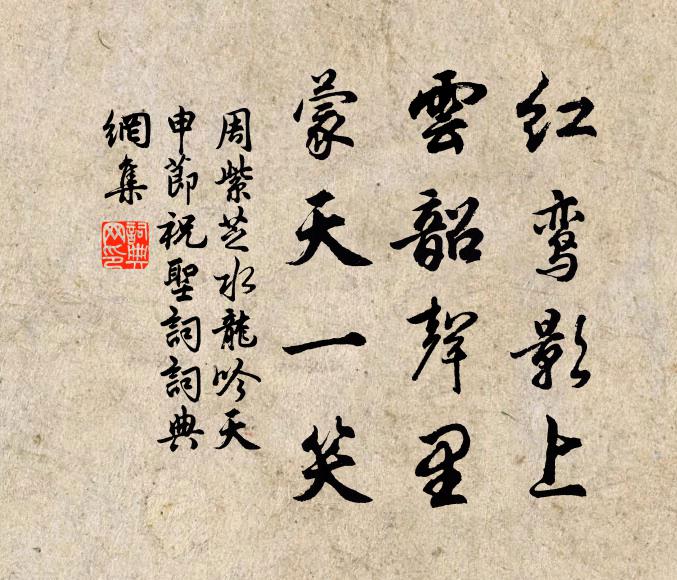 红鸾影上
雲韶聲里
蒙天一笑
周紫芝水龍吟天
申節祝聖詞詞典
網集
詞典
网印